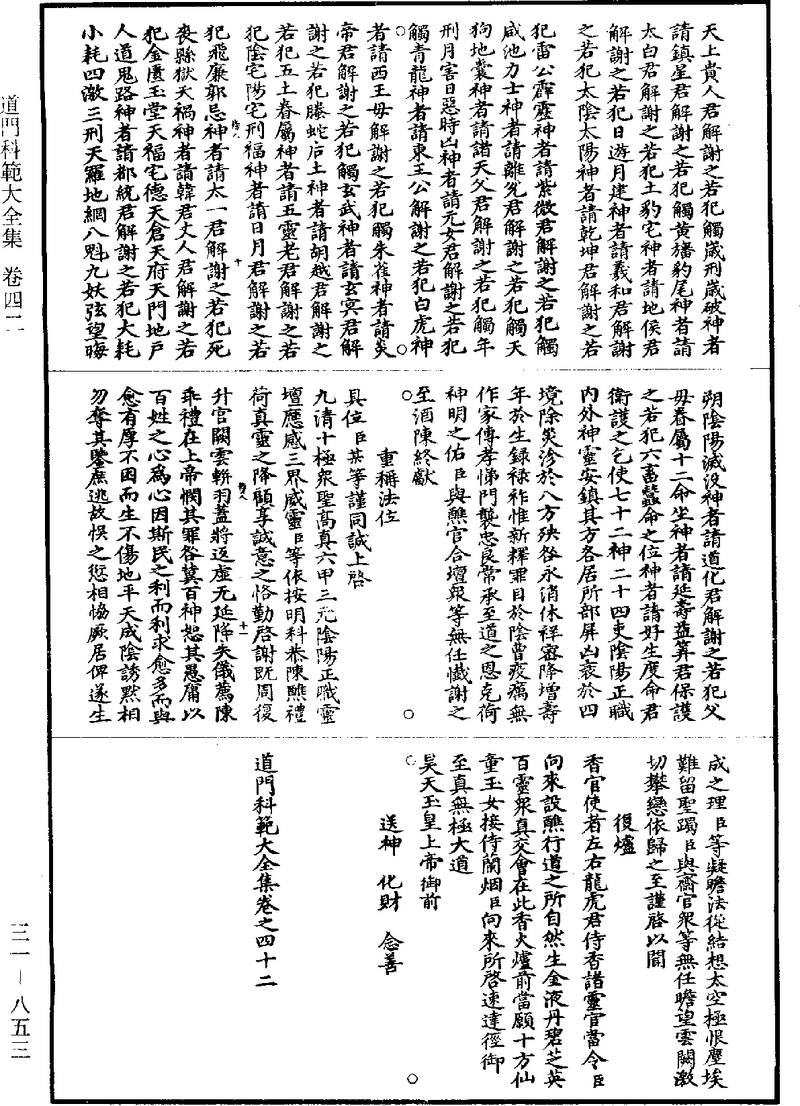 天上貴人君解謝之若犯觸歲刑歲破神者
請鎮星君解謝之若犯觸黄旛豹尾神者請
太白君解謝之若犯土豹宅神者請地侯君
解謝之若犯日遊月建神者請羲和君解謝
之若犯太陰太陽神者請乾坤君解謝之若
犯雷公霹靂神者請紫微君解謝之若犯觸
咸池力士神者請離兊君解謝之若犯觸天
狗地囊神者請諸天父君解謝之若犯觸年
刑月害日惡時凶神者請元女君解謝之若犯
觸青龍神者請東王公解謝之若犯白虎神
者請西王母解謝之若犯觸朱雀神者請炎
帝君解謝之若犯觸玄武神者請玄冥君解
謝之若犯螣蛇后土神者請胡越君解謝之
若犯五土眷屬神者請五靈老君解謝之若
犯陰宅陽宅刑福神者請日月君解謝之若
犯飛廉郭忌神者請太一君解謝之若犯死
喪縣獄天禍神者請韓君丈人君解謝之若
犯金匱玉堂天福宅德天倉天府天門地戶
人道鬼路神者請都統君解謝之若犯大耗
小耗四激三刑天羅地網八魁九妖弦望晦
朔陰陽滅没神者請道化君解謝之若犯父
母眷屬十二命坐神者請延壽益筭君保護
之若犯六畜蠶命之位神者請好生度命君
衛護之乞使七十二神二十四吏陰陽正職
內外神靈安鎮其方各居所部屏凶衰於四
境除災沴於八方殃咎永消休祥密降增壽
年於生錄祿祚惟新釋罪目於陰曹疫癘無
作家傳孝悌門襲忠良常承至道之恩克荷
神明之佑臣與醮官合壇衆等無任懺謝之
至酒陳終獻
重稱法位
具位臣某等謹同誠上啓
九清十極衆聖高真六甲三元陰陽正職靈
壇應感三界威靈臣等依按明科恭陳醮禮
荷真靈之降顧享誠意之恪勤啓謝既周復
升官闕雲輧羽蓋將返虛无延降失儀薦陳
乖禮在上帝憫其罪咎冀百神恕其愚庸以
百姓之心為心因斯民之利而利求愈多而與
愈有厚不因而生不傷地平天成陰誘黙相
勿奪其鑒庶逃故悮之愆相協厥居俾遂生
成之理臣等凝瞻法從結想太空極恨塵埃
難留聖躅臣與齋官衆等無任瞻望雲闕激
切攀戀依歸之至謹啓以聞
復爐
香官使者左右龍虎君侍香諸靈官當令臣
向來設醮行道之所自然生金液丹碧芝英
百靈衆真交會在此香火爐前當願十方仙
童玉女接侍蘭烟臣向來所啓速達徑御
至真無極大道
昊天玉皇上帝御前
送神 化財 念善
道門科範大全集卷之四十二
道門科範大全集 卷四二
三一－八五三
十
十一